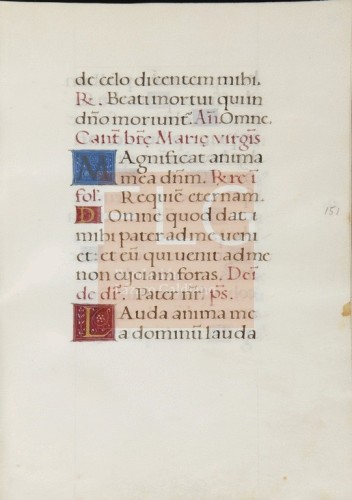 de celo dicentem mihi.
R. Beati mortui qui in
dño moriunt᷑. Añ. Omne.
Cant᷑ bt̄ę Marię virg̃is
MAgnificat anima
mea dñm. R. re ĩ
fol. Requiẽ eternam.
D. Omne quod dat i
mihi pater ad me veni
et: et eũ qui uenit ad me
non eijciam foras. Dei᷑
de dr̃. Pater nr̃. ps̃.
LAuda anima me
a dominũ lauda
151